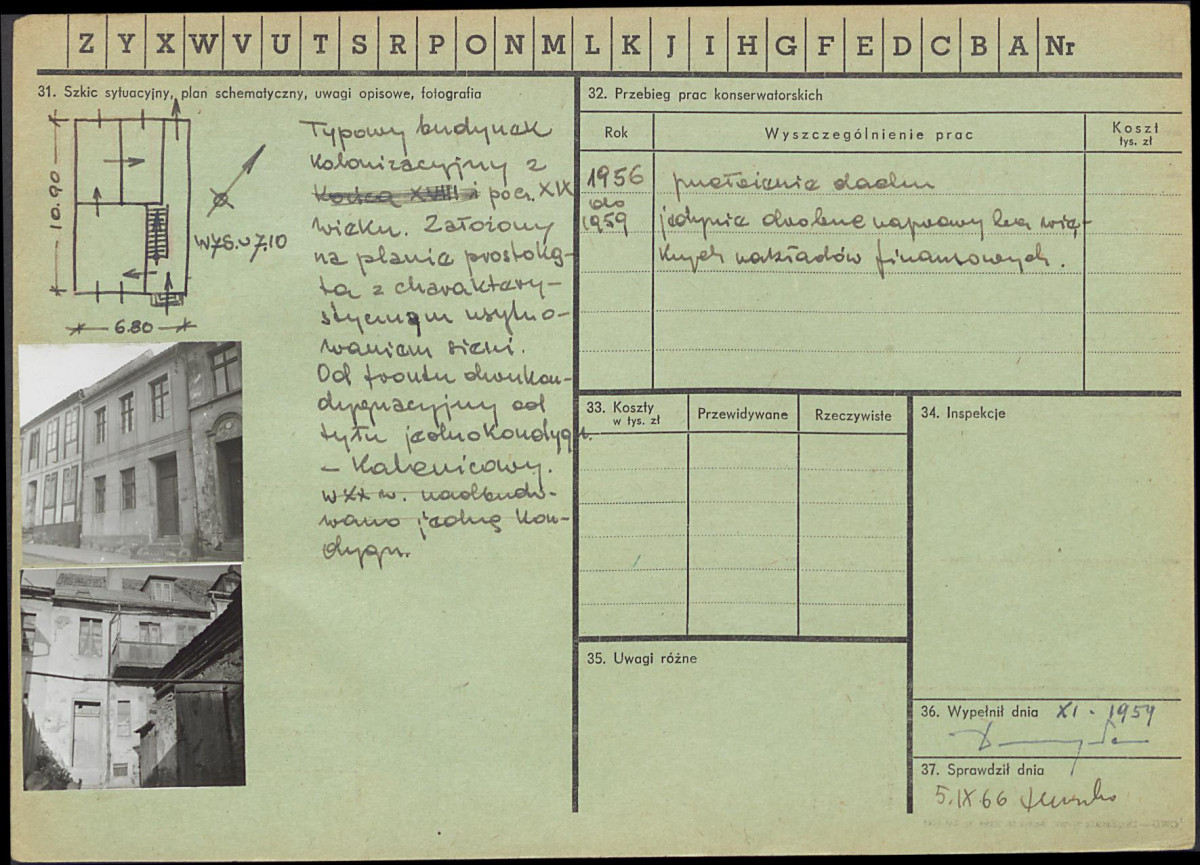 Z Y X W V U T S R P O N M L K J I H G F E D C B A Nr
31. Szkic sytuacyjny, plan schematyczny, uwagi opisowe, fotografia
10.90
6.80
WYS. 7.10
Typowy budynek
kolonizacyjny z
końca XVIII i pocz. XIX
wieku. Założony
na planie prostoką-
ta z charaktery-
stycznym usytuo-
waniem sieni.
Od frontu dwukon-
dygnacyjny od
tyłu jednokondygn.
– Kalenicowy.
w XX w. nadbudo-
wano jedną kon-
dygn.
32. Przebieg prac konserwatorskich
Rok
Wyszczególnienie prac
Koszt
tys. zł
1956 przełożenie dachu
do
1959 jedynie drobne naprawy bez wię-
kszych nakładów finansowych.
33. Koszty
w tys. zł
Przewidywane
Rzeczywiste
34. Inspekcje
35. Uwagi różne
36. Wypełnił dnia XI - 1959
37. Sprawdził dnia
5.IX.66